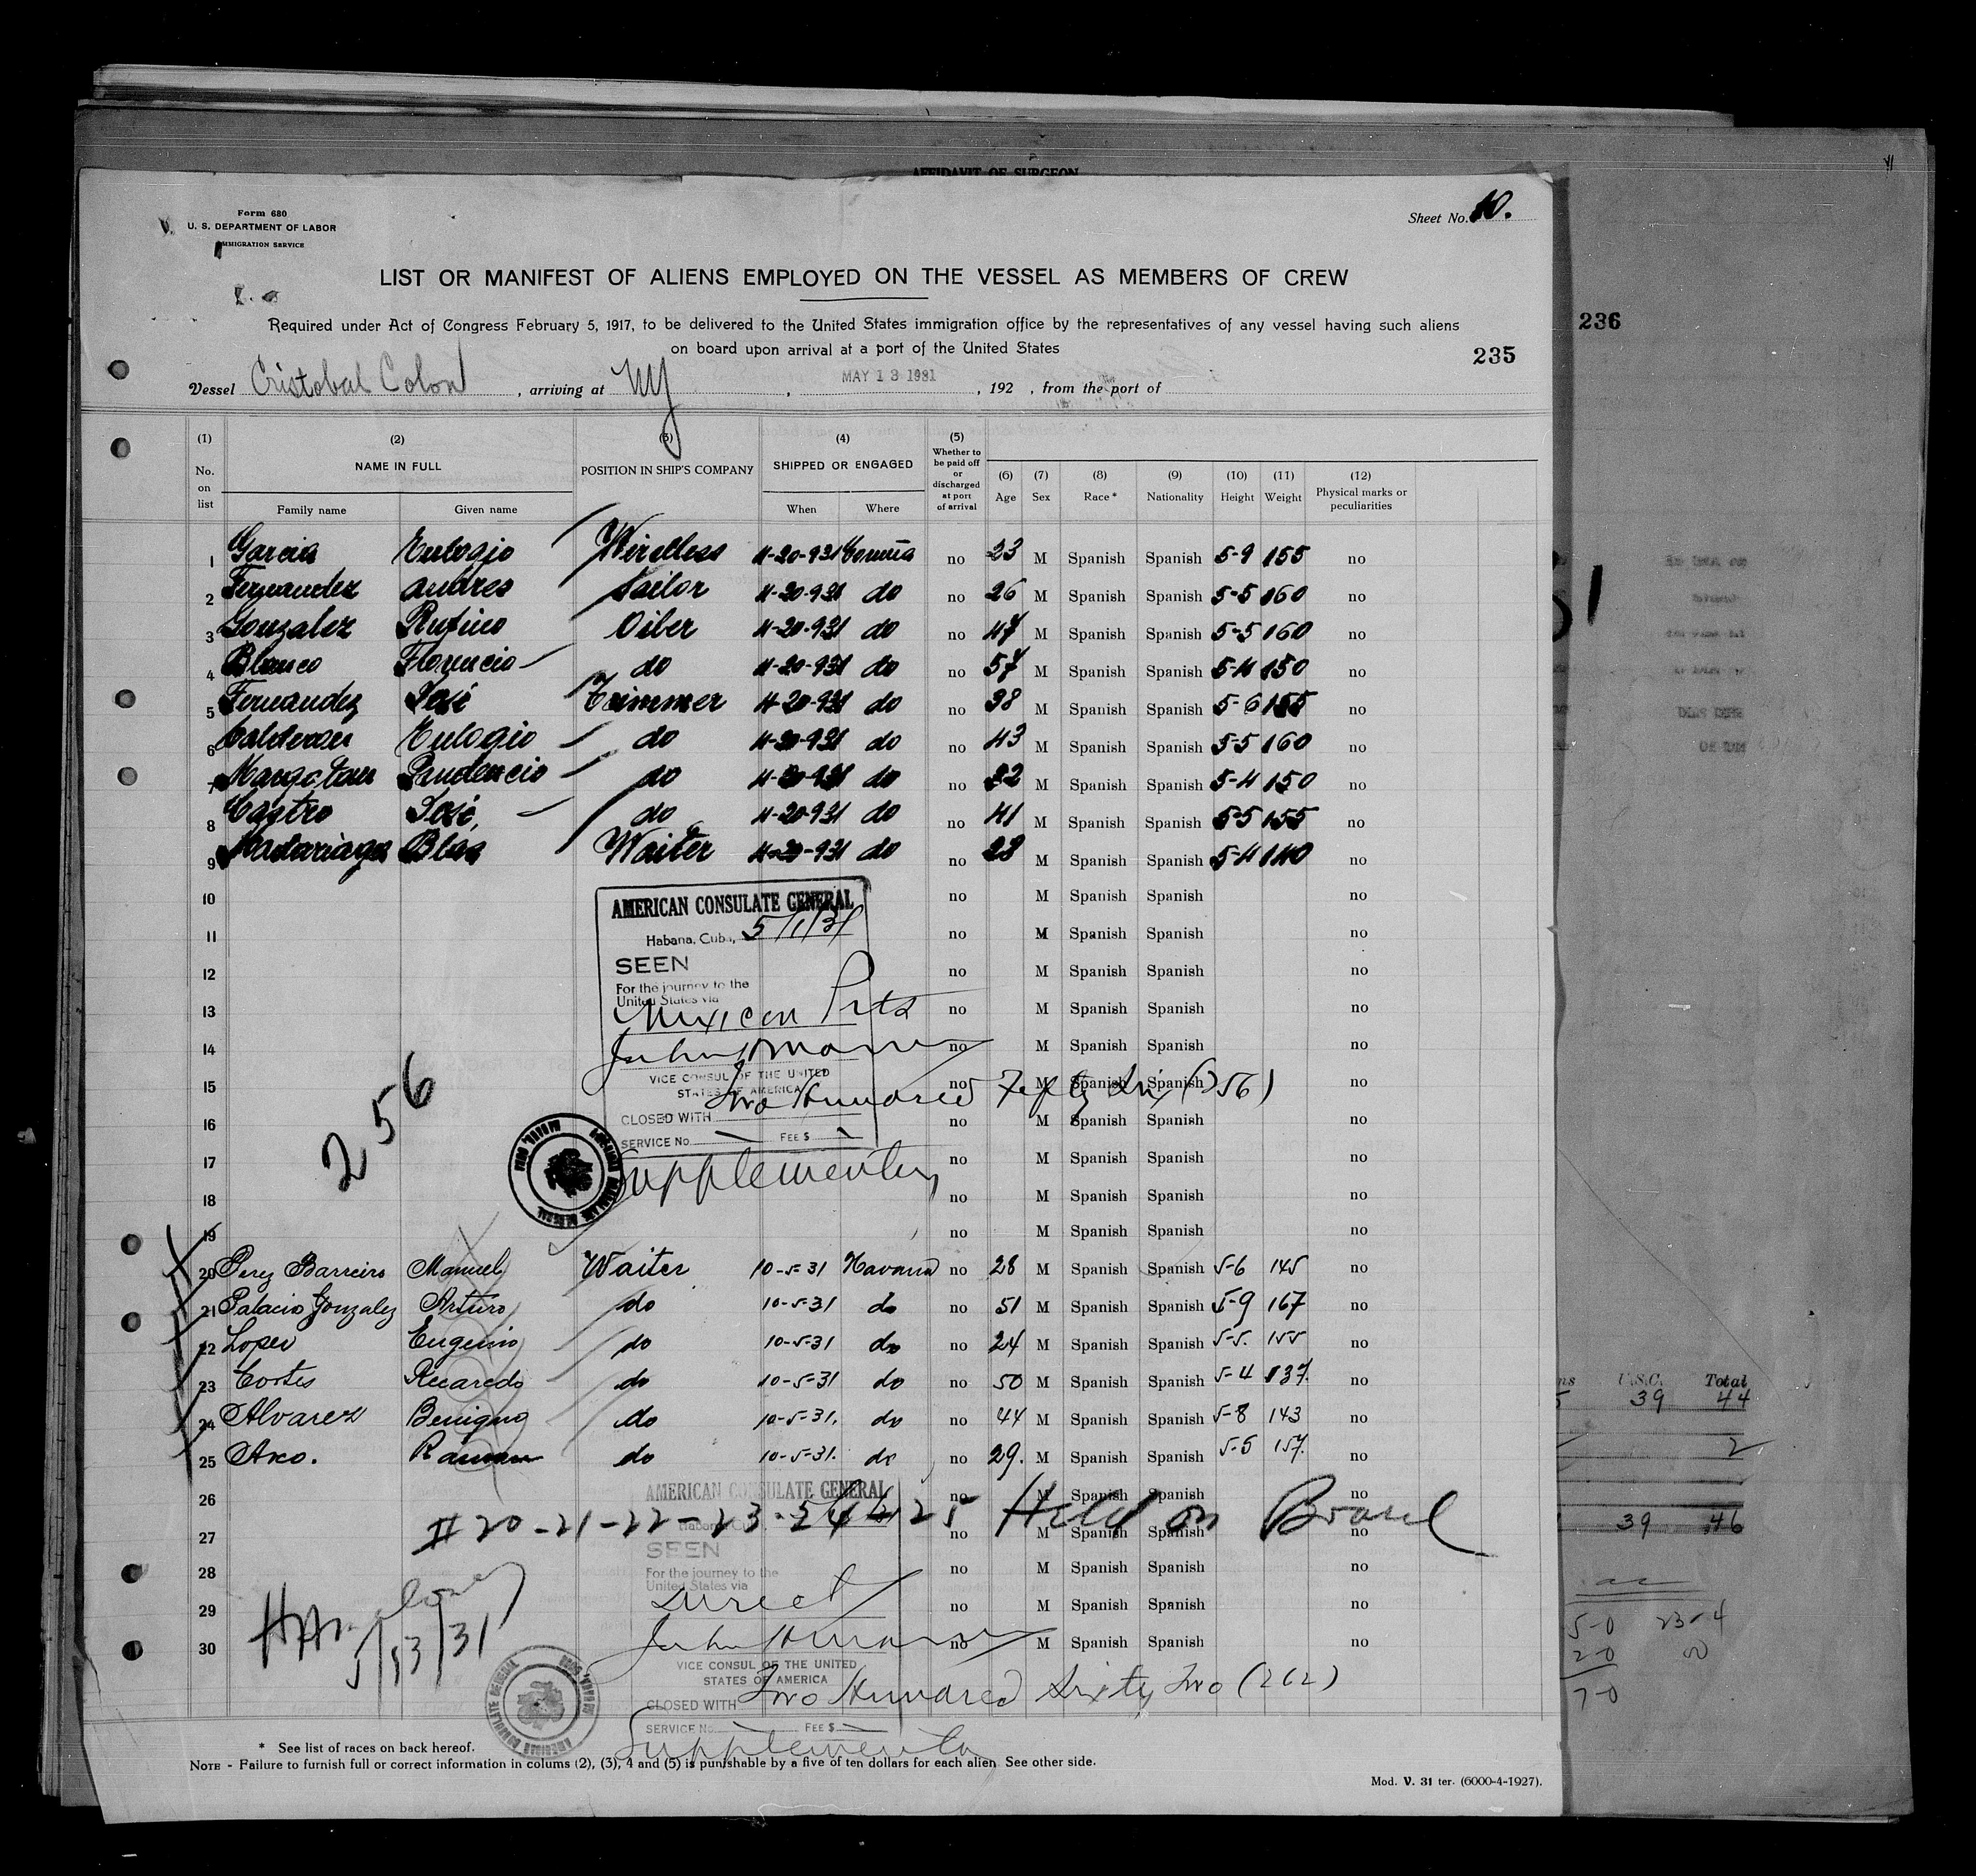 AFFIDAVIT OF SURGEON
Form 680
U. S. DEPARTMENT OF LABOR
IMMIGRATION SERVICE
Sheet No. 10.
LIST OR MANIFEST OF ALIENS EMPLOYED ON THE VESSEL AS MEMBERS OF CREW
Required under Act of Congress February 5, 1917, to be delivered to the United States immigration office by the representatives of any vessel having such aliens
on board upon arrival at a port of the United States
235
236
Vessel Cristobal Colon, arriving at NY, MAY 13 1931, 192 , from the port of
(1) No. on list
(2) NAME IN FULL Family name Given name
(3) POSITION IN SHIP'S COMPANY
(4) SHIPPED OR ENGAGED When Where
(5) Whether to be paid off or discharged at port of arrival
(6) Age
(7) Sex
(8) Race *
(9) Nationality
(10) Height
(11) Weight
(12) Physical marks or peculiarities
1 Garcia Eulogio Wireless 4-20-931 Coruña no 23 M Spanish Spanish 5-9 155 no
2 Fernandez Andres Sailor 4-20-931 do no 26 M Spanish Spanish 5-5 160 no
3 Gonzalez Rufino Oiler 4-20-931 do no 47 M Spanish Spanish 5-5 160 no
4 Blanco Florencio do 4-20-931 do no 57 M Spanish Spanish 5-4 150 no
5 Fernandez José Trimmer 4-20-931 do no 38 M Spanish Spanish 5-6 155 no
6 Calderon Eulogio do 4-20-931 do no 43 M Spanish Spanish 5-5 160 no
7 Prudencio do 4-20-931 do no 32 M Spanish Spanish 5-4 150 no
8 Castro José, do 4-20-931 do no 41 M Spanish Spanish 5-5 155 no
9 Madariaga Blas Waiter 4-20-931 do no 28 M Spanish Spanish 5-4 140 no
10 no M Spanish Spanish no
11 no M Spanish Spanish no
12 no M Spanish Spanish no
13 no M Spanish Spanish no
14 no M Spanish Spanish no
15 no M Spanish Spanish no
16 no M Spanish Spanish no
17 no M Spanish Spanish no
18 no M Spanish Spanish no
19 no M Spanish Spanish no
AMERICAN CONSULATE GENERAL
Habana, Cuba, 5/1/31
SEEN
For the journey to the
United States via
Mexican Prts
VICE CONSUL OF THE UNITED
STATES OF AMERICA
Two Hundred Fifty Six (256)
CLOSED WITH
SERVICE No. FEE $
Supplementary
256
20 Perez Barreiro Manuel Waiter 10-5-31 Havana no 28 M Spanish Spanish 5-6 145 no
21 Palacio Gonzalez Arturo do 10-5-31 do no 51 M Spanish Spanish 5-9 167 no
22 Lopez Eugenio do 10-5-31 do no 24 M Spanish Spanish 5-5. 155 no
23 Cortes Recaredo do 10-5-31 do no 50 M Spanish Spanish 5-4 137. no
24 Alvarez Benigno do 10-5-31. do no 44 M Spanish Spanish 5-8 143 no
25 Ramon do 10-5-31. do no 29. M Spanish Spanish 5-5 157. no
26 no M Spanish Spanish no
27 no M Spanish Spanish no
28 no M Spanish Spanish no
29 no M Spanish Spanish no
30 no M Spanish Spanish no
# 20-21-22-23-24 25 Held on Board
AMERICAN CONSULATE GENERAL
SEEN
For the journey to the
United States via
Direct
VICE CONSUL OF THE UNITED
STATES OF AMERICA
Two Hundred Sixty Two (262)
CLOSED WITH
SERVICE No. FEE $
5/13/31
* See list of races on back hereof.
NOTE - Failure to furnish full or correct information in colums (2), (3), 4 and (5) is punishable by a five of ten dollars for each alien See other side.
Mod. V. 31 ter. (6000-4-1927).
U.S.C. Total
39 44
2
39 46
5-0 23-4
2-0
7-0